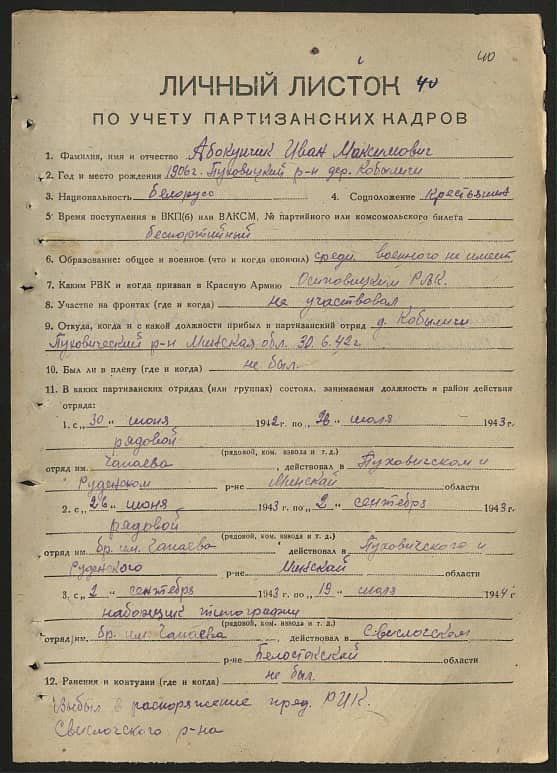 40
ЛИЧНЫЙ ЛИСТОК 40
ПО УЧЕТУ ПАРТИЗАНСКИХ КАДРОВ
1. Фамилия, имя и отчество Абокунчик Иван Максимович
2. Год и место рождения 1906г. Пуховицкий р-н дер. Кобыличи
3. Национальность белорусс 4. Соцположение Крестьянин
5. Время поступления в ВКП(б) или ВЛКСМ, № партийного или комсомольского билета
беспартийный
6. Образование: общее и военное (что и когда окончил) средн. военного не имеет
7. Каким РВК и когда призван в Красную Армию Осиповицким РВК.
8. Участие на фронтах (где и когда) не участвовал
9. Откуда, когда и с какой должности прибыл в партизанский отряд д. Кобыличи
Пуховический р-н Минская обл. 30.6.42г.
10. Был ли в плену (где и когда) не был.
11. В каких партизанских отрядах (или группах) состоял, занимаемая должность и район действия
отряда:
1. с „30" июня 1942 г. по „26" июля 1943 г.
рядовой
(рядовой, ком. взвода и т. д.)
отряд им. Чапаева, действовал в Пуховичском и
Руденском р-не Минской области
2. с „26" июня 1943 г. по „2" сентября 1943 г.
рядовой
(рядовой, ком. взвода и т. д.)
отряд им. бр. им. Чапаева действовал в Пуховичского и
Руденского р-не Минской области
3. с „2" сентября 1943 г. по „19" июля 1944 г
наборщик типографии
(рядовой, ком. взвода и т. д.)
отряд им. бр. им. Чапаева, действовал в Свислочском
р-не Белостокской области
12. Ранения и контузии (где и когда) не был.
Выбыл в распоряжение пред. РИК.
Свислочского р-на